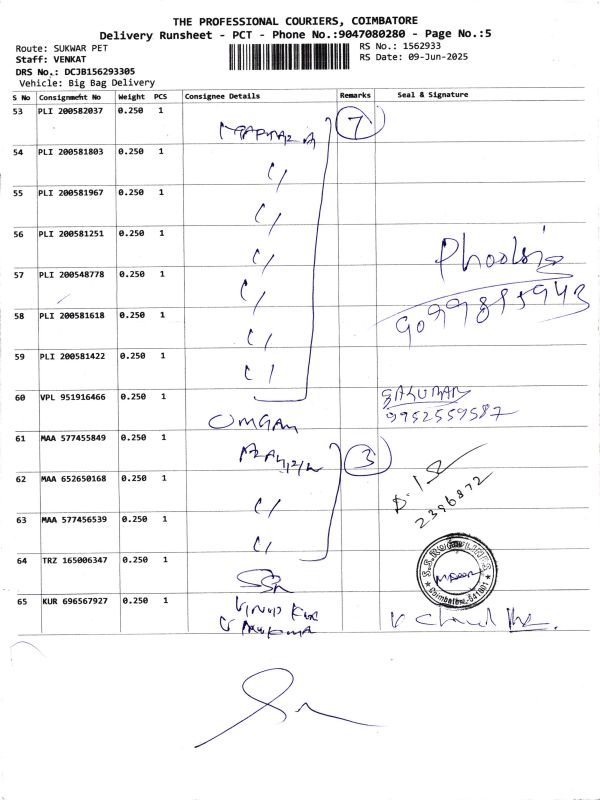 THE PROFESSIONAL COURIERS, COIMBATORE
Delivery Runsheet - PCT - Phone No.:9047080280 - Page No.:5
Route: SUKWAR PET
RS No.: 1562933
Staff: VENKAT
RS Date: 09-Jun-2025
DRS No.: DCJB156293305
Vehicle: Big Bag Delivery
S No Consignment No Weight PCS Consignee Details Remarks Seal & Signature
53 PLI 200582037 0.250 1 7
54 PLI 200581803 0.250 1
55 PLI 200581967 0.250 1
56 PLI 200581251 0.250 1
57 PLI 200548778 0.250 1
9099895943
58 PLI 200581618 0.250 1
59 PLI 200581422 0.250 1
60 VPL 951916466 0.250 1
9952559587
61 MAA 577455849 0.250 1 3
62 MAA 652650168 0.250 1
2396872
63 MAA 577456539 0.250 1
64 TRZ 165006347 0.250 1
Coimbatore-641001
65 KUR 696567927 0.250 1